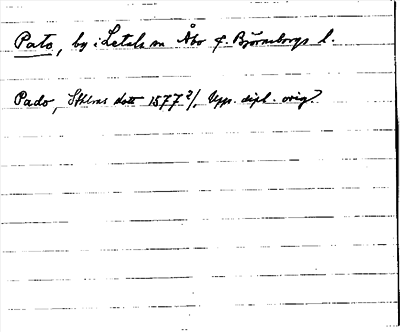 Pato, by i Letala sn Åbo o. Björneborgs l.
Pado, Sthlms 1577 2/1 Upps. dipl. orig?